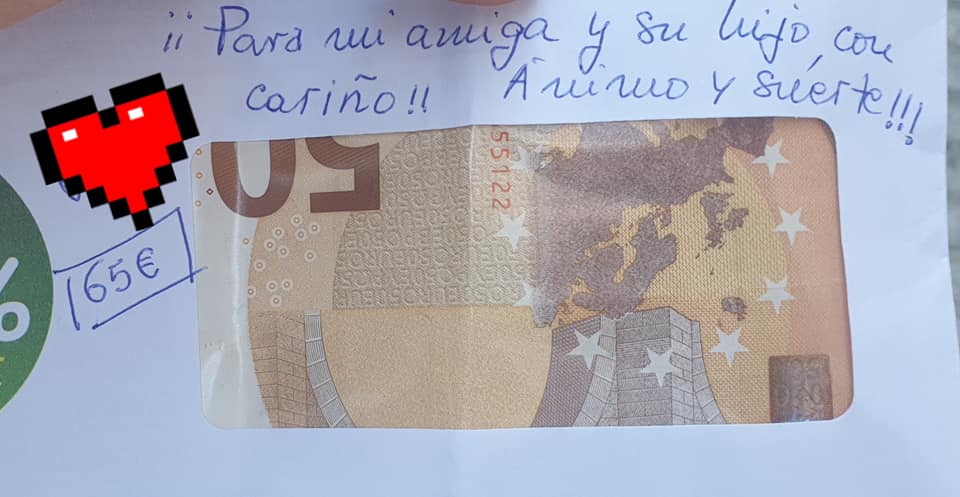 ¡¡Para mi amiga y su hijo, con
cariño!! Ánimo y suerte!!!
65€
50
55122
%